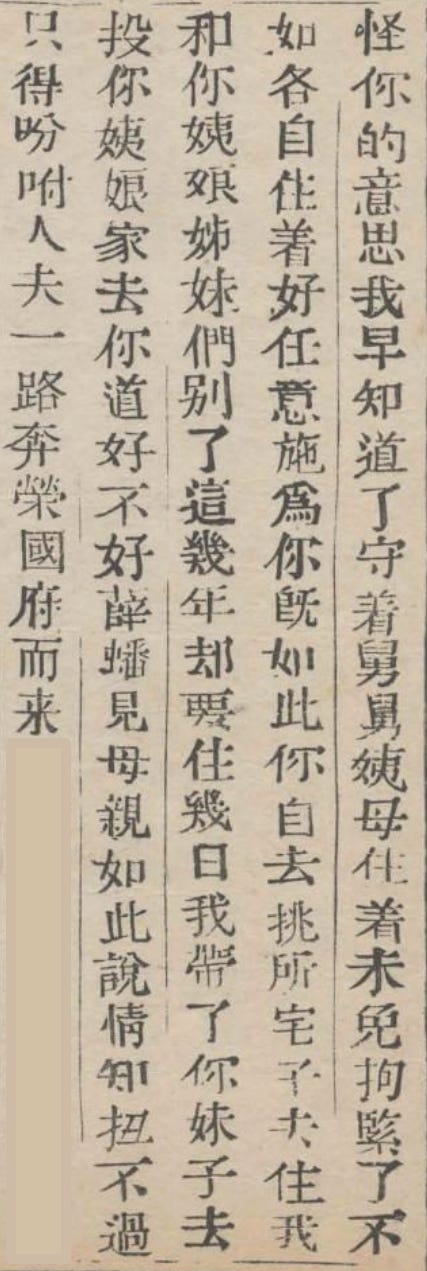 怪你的意思我早知道了守着舅舅姨母住着未免拘緊了不
如各自住着好任意施爲你旣如此你自去挑所宅子去住我
和你姨娘姊妹們别了這幾年却要住幾日我帶了你妹子去
投你姨娘家去你道好不好薛蟠見母親如此說情知扭不過
只得吩咐人夫一路奔榮國府而来